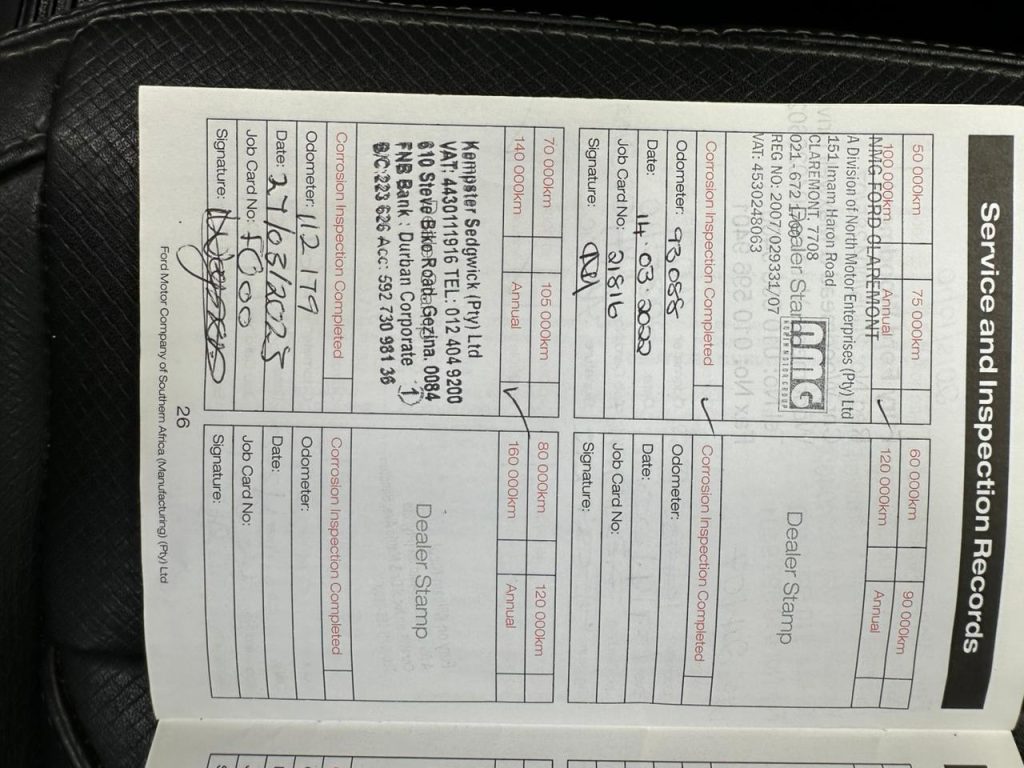 Service and Inspection Records
50 000km
75 000km
100 000km
Annual ✓
NMG FORD CLAREMONT
A Division of North Motor Enterprises (Pty) Ltd
151 Imam Haron Road
CLAREMONT, 7708
021 - 672 1700
REG NO: 2007/029331/07
VAT: 4530248063
Dealer Stamp
nmg
Corrosion Inspection Completed ✓
Odometer: 93 088
Date: 14.03.2022
Job Card No: 21816
Signature:
60 000km
90 000km
120 000km
Annual
Dealer Stamp
Corrosion Inspection Completed
Odometer:
Date:
Job Card No:
Signature:
70 000km
105 000km
140 000km
Annual ✓
Kempster Sedgwick (Pty) Ltd
VAT: 4430111916 TEL: 012 404 9200
610 Steve Biko Road, Gezina. 0084
FNB Bank : Durban Corporate 1
B/C:223 626 Acc: 592 730 981 36
Corrosion Inspection Completed
Odometer: 112 179
Date:
Job Card No:
Signature:
80 000km
120 000km
160 000km
Annual
Dealer Stamp
Corrosion Inspection Completed
Odometer:
Date:
Job Card No:
Signature:
26
Ford Motor Company of Southern Africa (Manufacturing) (Pty) Ltd